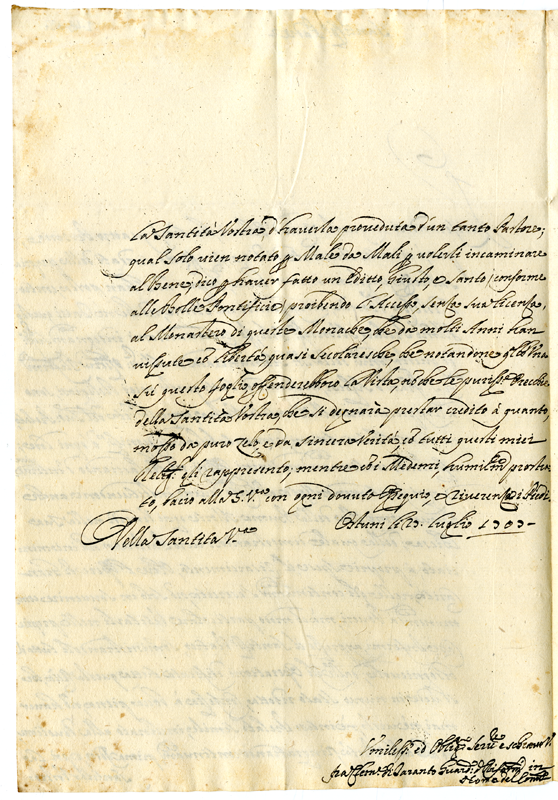 la Santità Vostra d'haverla proveduta d'un tanto Pastore;
qual solo vien notato p Male da Mali p volerli incaminare
al Bene, dico p haver fatto un Editto Giusto, e Santo (conforme
alle Bolle Pontificie) proibendo l'Accesso senza sua licenza,
al Monastero di queste Monache, che da molti Anni han
vissute cō libertà quasi secolaresche, che notandone
sù questo foglio offenderebbero la Vista, nō che le puriss.e Orecchie
della Santità Vostra, che si degnarà prestar credito à quanto,
mosso da puro zelo e da sincera Verità, cō tutti questi miei
gli rappresento, mentre cō i Medemi humilm.te prostra
to, bacio alla S. V.ra con ogni dovuto Ossequio, e riverenza i Piedi.
Ostuni li 23. luglio 1703
Della Santità V.ra
Umiliss.o ed Oblig.o Ser.re e schiavo
fra di Taranto Guard.